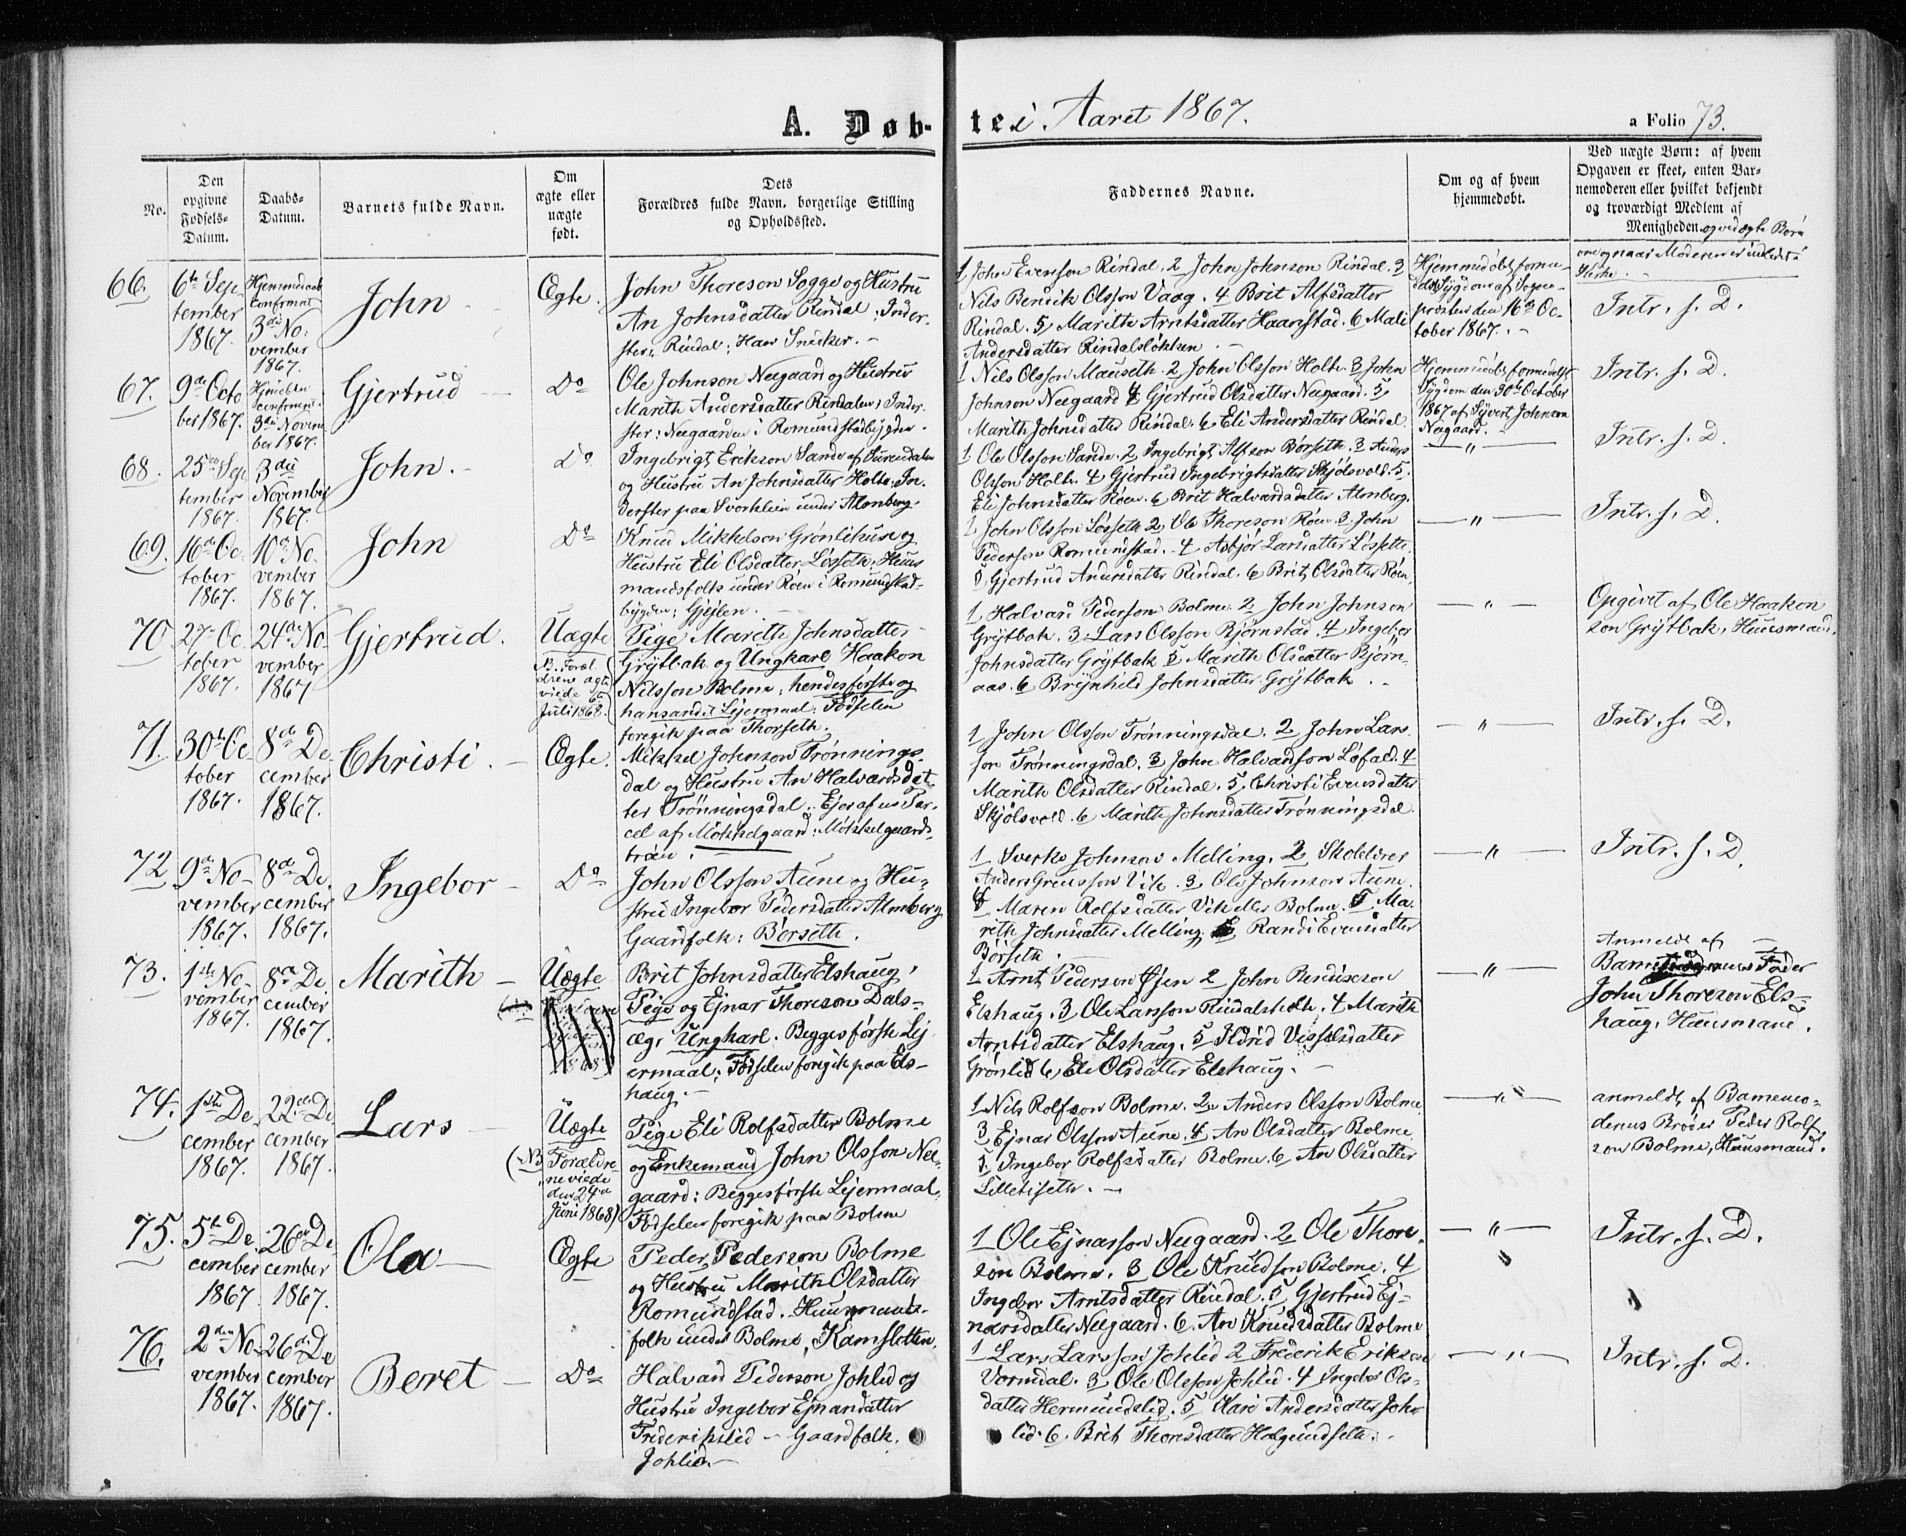 A. Døb-
te i Aaret 1867.
a Folio 73.
No.
Den
opgivne
Fødsels-
Datum.
Daabs-
Datum.
Barnets fulde Navn.
Om
ægte eller
uægte
født.
Dets
Forældres fulde Navn, borgerlige Stilling
og Opholdssted.
Faddernes Navne.
Om og af hvem
hjemmedøbt.
Ved uægte Børn: af hvem
Opgaven er skeet, enten Bar-
nemoderen eller hvilket bekjendt
og troværdigt Medlem af
Menigheden. og ved ægte Børn
om og naar Moderen er indledet i
Kirke.
66.
6te Sep
tember
1867.
Hjemmedaab
confirmert
3die No-
vember
1867.
John
Ægte.
John Thoreson Sogge og Hustru
An Johnsdatter Rindal; Inder-
ster; Rindal; Han Snedker.
1 John Evensson Rindal. 2 John Johnson Rindal. 3
Nils Bendik Olsson Vaag. 4 Brit Alfsdatter
Rindal. 5 Marith Arntsdatter Haanstad. 6 Mali
Andersdatter Rindalsløkken.
Hjemmedøbt formedelst Sygdom af Sogne-
præsten den 16de Oc-
tober 1867.
Intr. s. D.
67.
9de Octo
ber 1867.
Hjmdøbn
confirmert
3die Novem
ber 1867.
Gjertrud
Do
Ole Johnson Neegaard og Hustru
Marith Andersdatter Rindalen; Inder-
ster; Neegaarden i Romundstadbygden.
1 Nils Olsson Mauseth. 2 John Olsson Holte. 3 John
Johnson Neegaard 4 Gjertrud Olsdatter Neegaard. 5
Marith Johnsdatter Rindal. 6 Eli Andersdatter Rindal.
Hjemmedøbt formedelst
Sygdom den 30te October
1867 af Syvert Johnson
Neegaard.
Intr. s. D.
68.
25de Sep
tember
1867.
3die
November
1867.
John.
Do
Ingebrigt Erikson Sande af Surendalen
og Hustru An Johnsdatter Holte; In-
derster paa Svorkleien under Almberg.
1 Ole Olsson Sande. 2 Ingebrigt Alfson Børseth. 3 Anders
Olsson Holte. 4 Gjertrud Ingebrigtsdatter Skjølsvold. 5
Eli Johnsdatter Røen. 6 Brit Halvardsdatter Almberg.
— " —
Intr. s. D.
69.
16de Oc
tober
1867.
10de No-
vember
1867.
John
Do
Knud Mikkelson Grønlihuse og
Hustru Eli Olsdatter Løsseth. Huus
mandsfolk under Røen i Romundstad-
bygden; Gjejlen.
1 John Olsson Løsseth 2 Ole Thoreson Røen. 3 John
Pederson Romundstad. 4 Asbjør Larsdatter Løsseth.
5 Gjertrud Andersdatter Rindal. 6 Brit Olsdatter Røen.
— " —
Intr. s. D.
70
27de Oc
tober
1867.
24de No-
vember
1867
Gjertrud.
Uægte
NB. Foræl
drene ægte
viede 6te
Juli 1868.
Pige Marith Johnsdatter
Grytbak og Ungkarl Haakon
Nilsson Bolme; hendes første og
hans andet Lejermaal; Fødselen
foregik paa Thorseth.
1. Halvard Pederson Bolme. 2 John Johnson
Grytbak. 3. Lars Olsson Bjørnstad. 4 Ingebor
Johnsdatter Grytbak 5 Marith Olsdatter Bjørn-
aas. 6 Brynhild Johnsdatter Grytbak.
— " —
Opgivet af Ole Haakon
son Grytbak, Huusmand.
71.
30te Oc
tober
1867.
8de De
cember
1867.
Christi.
Ægte.
Mikkel Johnson Trønnings-
dal og Hustru An Halvardsdat-
ter Trønningsdal. Ejer af en Par-
cel af Møkkelgaard; Møkkelgaards-
trøen.
1 John Olsson Trønningsdal. 2 John Lars
son Trønningsdal. 3 John Halvardson Løfald. 4
Marith Olsdatter Rindal. 5 Christi Evensdatter
Skjølsvold. 6 Marith Johnsdatter Trønningsdal.
— " —
Intr. s. D.
72
9de No-
vember
1867.
8de De
cember
1867.
Ingebor
Do
John Olsson Aune og Hu-
stru Ingebor Pedersdatter Almberg
Gaardfolk: Børseth.
1 Sverke Johnson Melling. 2 Skolelærer
Anders Greusson Vik. 3 Ole Johnson Aune.
4 Maren Rolfsdatter Vik eller Bolme. 5 Ma-
rith Johnsdatter Melling. 6 Randi Evensdatter
Børseth.
— " —
Intr. s. D.
73.
1ste No-
vember
1867.
8de De
cember
1867.
Marith
Uægte
Brit Johnsdatter Elshaug,
Pige og Ejnar Thoreson Dals-
æg, Ungkarl. Begges første Lej
ermaal; Fødselen foregik paa Els-
haug.
1 Arnt Pederson Øfsen 2 John Bendixson
Elshaug. 3 Ole Larsson Rindalsholt. 4 Marith
Arntsdatter Elshaug. 5 Ildrid Visselsdatter
Grønlid 6 Eli Olsdatter Elshaug.
— " —
Anmeldt af
Barnemoderens Fader
John Thoreson Els-
haug, Huusmand.
74.
1ste De
cember
1867.
22de De
cember
1867.
Lars
Uægte
(NB Forældre-
ne viede
den 24de
Juni 1868)
Pige Eli Rolfsdatter Bolme
og Enkemand John Olsson Nee-
gaard; Begges første Lejermaal.
Fødselen foregik paa Bolme
1 Nils Rolfson Bolme. 2 Anders Olsson Bolme
3 Ejnar Olsson Aune. 4 An Olsdatter Bolme.
5 Ingebor Rolfsdatter Bolme. 6 An Olsdatter
Lilletiseth.
— " —
anmeldt af Barnemo-
derens Broder Peder Rolf
son Bolme, Huusmand.
75.
5te De
cember
1867.
26de De
cember
1867.
Ola
Ægte
Peder Pederson Bolme
og Hustru Marith Olsdatter
Romundstad. Huusmands-
folk under Bolme, Kamsletten.
1 Ole Ejnarsson Neegaard. 2 Ole Thore-
son Bolme. 3 Ole Knudson Bolme. 4
Ingebor Arntsdatter Rindal. 5 Gjertrud Ej-
narsdatter Neegaard. 6. An Knudsdatter Bolme
— " —
Intr. s. D.
76.
2den No-
vember
1867.
26de De
cember
1867.
Beret
Do
Halvard Pederson Johlid og
Hustru Ingebor Ejnarsdatter
Frederikslid — Gaardfolk.
Johlid.
1 Lars Larsson Johlid 2 Frederik Erikson
Vormdal. 3 Ole Olsson Johlid. 4 Ingebor Ols-
datter Hermundslid. 5 Kari Andersdatter Joh-
lid. 6. Brit Thoresdatter Helgundseth.
— " —
Intr. s. D.